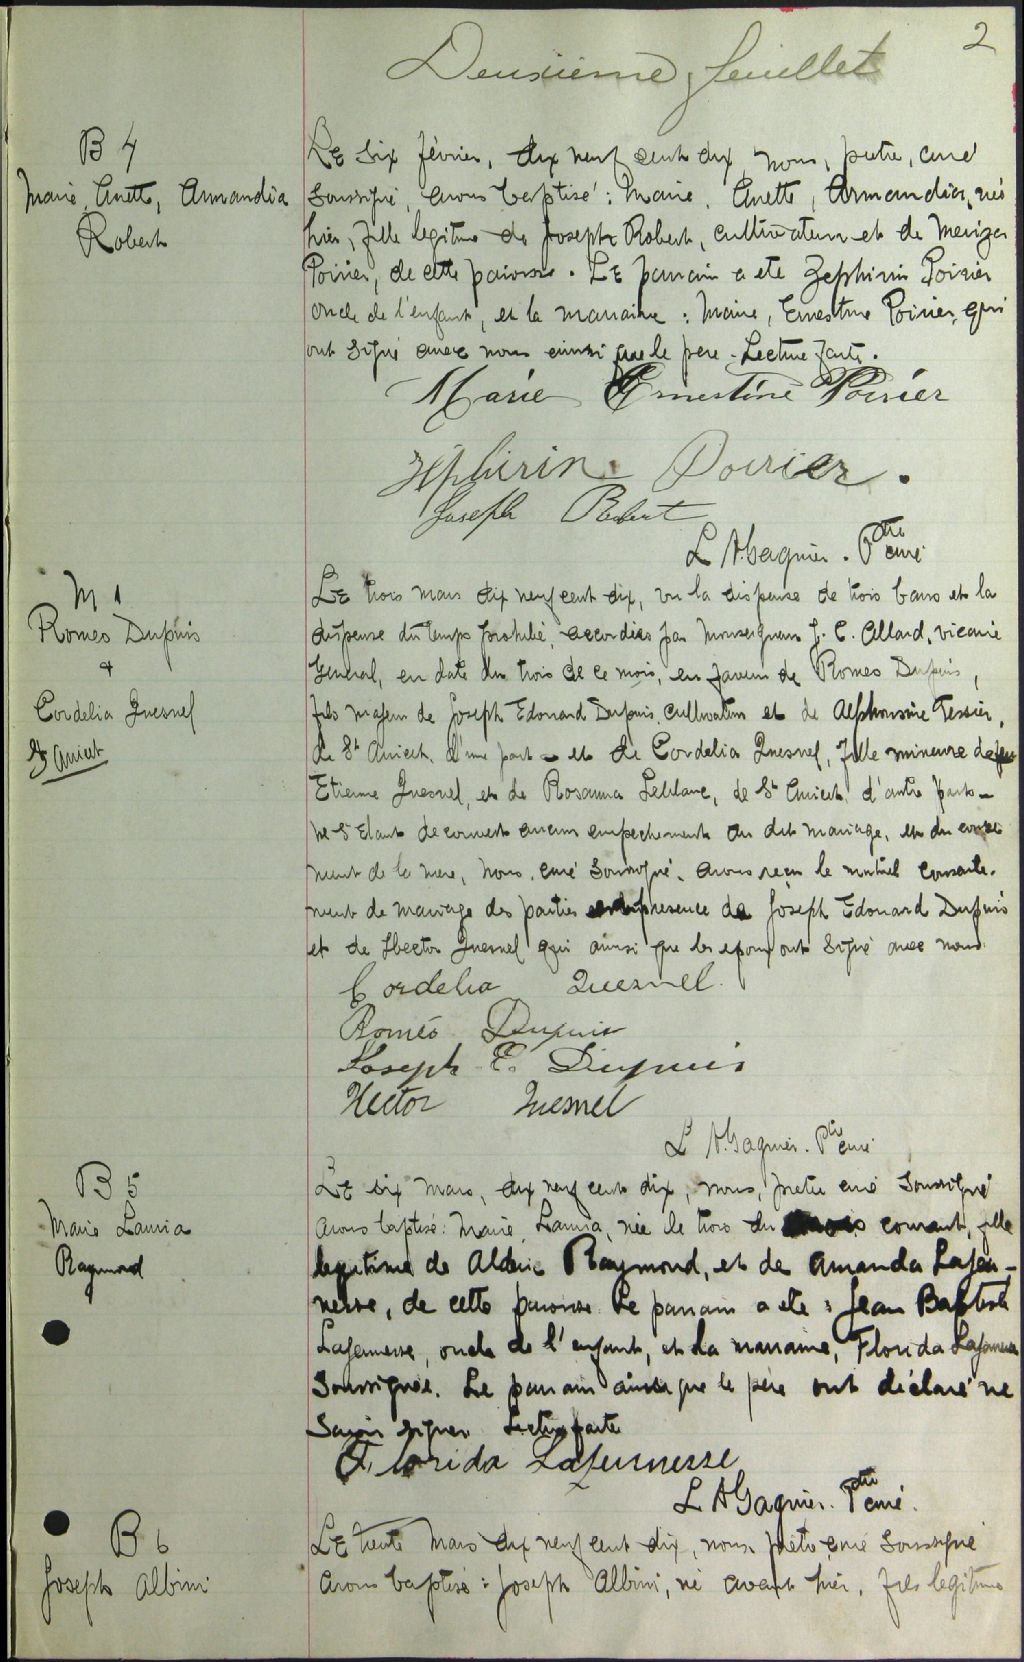 2
Deuxième feuillet
B 4
Marie, Anette, Armandia
Robert
Le six février, dix neuf cent dix, nous, prêtre, curé
soussigné, avons baptisé : Marie, Anette, Armandia, née
hier, fille legitime de Joseph Robert, cultivateur et de
Poirier, de cette paroisse. Le parrain a ete Zephirin Poirier
oncle de l'enfant, et la marraine : Marie, Ernestine Poirier, qui
ont signé avec nous ainsi que le pere. Lecture faite.
Marie Ernestine Poirier
Zéphirin Poirier.
Joseph Robert
L A Gagnier. Ptre curé
M 1
Romeo Dupuis
&
Cordelia Quesnel
St Anicet
Le trois mars dix neuf cent dix, vu la dispense de trois bans et la
dispense du temps prohibé, accordées par Monseigneur J. C. Allard, vicaire
General, en date du trois de ce mois, en faveur de Romeo Dupuis,
fils majeur de Joseph Edouard Dupuis, cultivateur et de Alphonsine Tessier,
de St Anicet, d'une part - et de Cordelia Quesnel, fille mineure de feu
Etienne Quesnel, et de Rosanna Leblanc, de St Anicet, d'autre part -
ne s'étant decouvert aucun empechement au dit mariage, et du consen
tement de la mere, nous, curé soussigné, avons reçu le mutuel consente-
ment de mariage des parties en presence de Joseph Edouard Dupuis
et de Hector Quesnel qui ainsi que les epoux ont signé avec nous
Cordelia Quesnel.
Roméo Dupuis
Joseph E. Dupuis
Hector Quesnel
L A Gagnier. Ptre curé
B 5
Marie Launia
Raymond
Le six mars, dix neuf cent dix, nous, pretre curé soussigné
avons baptisé : Marie, Launia, née le trois du courant, fille
legitime de Alderic Raymond, et de Amanda Lajeu-
nesse, de cette paroisse. Le parrain a ete : Jean Baptiste
Lajeunesse, oncle de l'enfant, et la marraine, Florida Lajeunesse
soussignée. Le parrain ainsi que le père ont déclaré ne
savoir signer Lecture faite
Florida Lajeunesse
L A Gagnier. Ptre curé.
B 6
Joseph Albini
Le trente mars dix neuf cent dix, nous pretre curé soussigné
avons baptisé : Joseph Albini, né avant hier, fils legitime